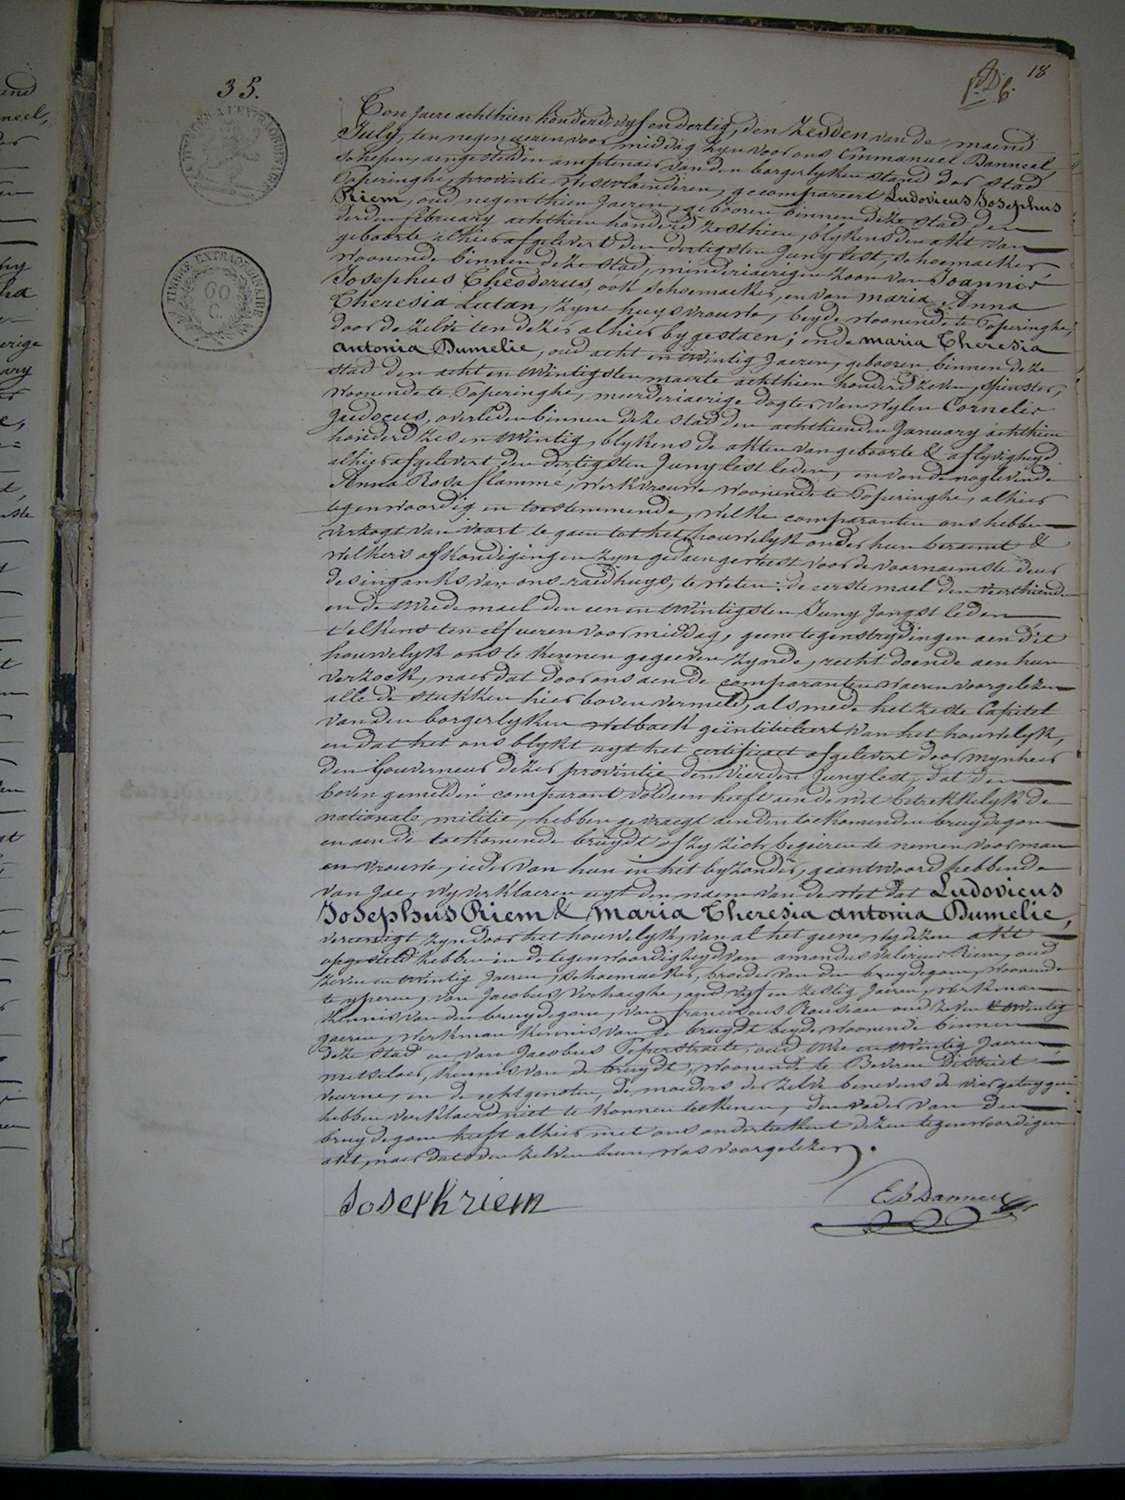 18
35.
P.D. 6.
Ten Jaere achthien honderd vyf en dertig, den Zesden van de maend
July, ten negen ueren voor middag zyn voor ons Emmanuel Danneel
Schepen, aengestelden amptenaer van den borgerlyken stand der stad
Poperinghe, provintie Westvlaenderen, gecompareert Ludovicus Josephus
Riem, oud negenthien Jaeren, gebooren binnen deze stad den
derden february achthien honderd zesthien, blykens den akt van
geboorte alhier afgelevert den dertigsten Juny lest, schoemaeker,
woonende binnen deze stad, minderjaerigen zoon van Joannes
Josephus Theodorus, ook schoemaeker, en van Maria Anna
Theresia Lutan, zyne huysvrouwe, beyde woonende te Poperinghe,
door de zelve ten dezen alhier bygestaen; ende Maria Theresia
Antonia Dumelie, oud acht en twintig Jaeren, gebooren binnen deze
stad den acht en twintigsten maerte achthien honderd zeven, spinster,
woonende te Poperinghe, meerderjaerige dogter van wylen Cornelis
Judocus, overleden binnen deze stad den achthienden January achthien
honderd zes en twintig, blykens de akten van geboorte & aflyvigheyd
alhier afgelevert den dertigsten Juny lest leden, en van de naglevende
Anna Rosa flamme, werkvrouwe woonende te Poperinghe, alhier
tegenwoordig en toestemmende, welke comparanten ons hebben
verzogt van voort te gaen tot het houwelyk onder hun beraemt &
welkers afkondigingen zyn gedaen geweest voor de voornaemste deur
des inganks van ons raedhuys, te weten: de eerste mael den veerthiende
en de tweede mael den een en twintigsten Juny Jongst leden
telkens ten elf ueren voor middag, geene tegenstrydingen aen dit
houwelyk ons te kennen gegeven zynde, recht doende aen hun
verzoek, naer dat door ons aen de comparanten waeren voorgelezen
alle de stukken hier boven vermeld, als mede het zeste Capitel
van den borgerlyken wetboek geïntituleert van het houwelyk,
en dat het ons blykt uyt het certificaet afgelevert door mynheer
den Gouverneur dezer provintie den vierden Juny lest, dat den
boven gemelden comparant voldaen heeft aen de wet betrekkelyk de
nationale militie, hebben gevraegt aen den toekomenden bruydegom
en aen de toekomende bruydt of zy zich begeeren te nemen voor man
en vrouwe, ieder van hun in het byzonder, geantwoord hebbende
van Jae, wy verklaeren uyt den naem van de wet dat Ludovicus
Josephus Riem & Maria Theresia Antonia Dumelie,
vereenigt zyn door het houwelyk, van al het geene wy dezen akt
opgesteld hebben in de tegenwoordigheyd van amandus valerius Riem, oud
zeven en twintig Jaeren, schoemaeker, broeder van den bruydegom, woonende
te yperen, van Jacobus Verhaeghe, oud vyf en zestig Jaeren, werkman
kennis van den bruydegom, van franciscus Rousseau oud zeven & twintig
Jaeren, werkman kennis van de bruydt beyde woonende binnen
deze stad en van Jacobus Peperstraete, oud twee en twintig Jaeren
metselaer, kennis van de bruydt, woonende te Beveren District
veurne, en de echtgenoten, de moeders der zelve benevens de vier getuygen
hebben verklaerd niet te konnen teekenen, den vader van den
bruydegom heeft alhier met ons onderteekent dezen tegenwoordigen
akt, naer dat den zelven hun was voorgelezen.
Joseph riem
E B Danneel
TIMBRE EXTRAORDINAIRE
60
C.